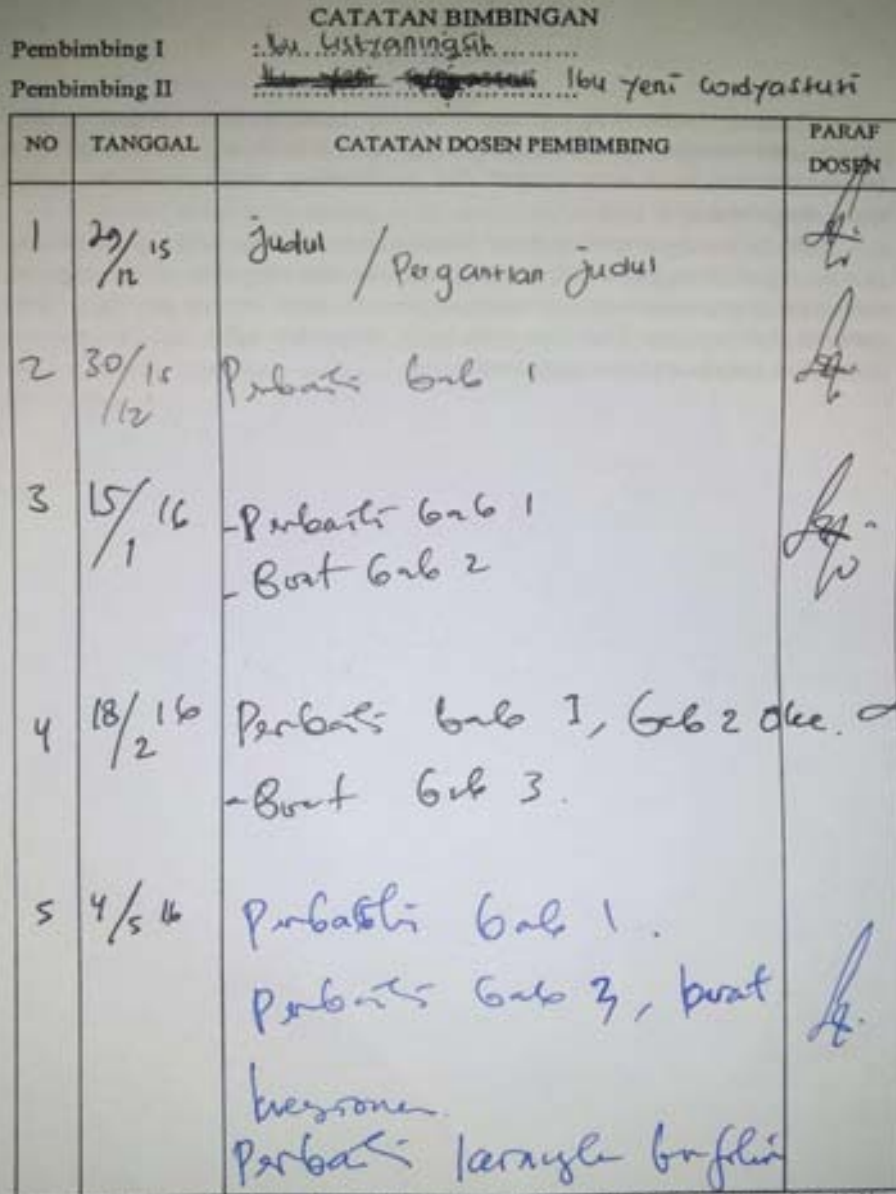 CATATAN BIMBINGAN
Pembimbing I : Ibu Listyaningsih
Pembimbing II Ibu Yeni Widyastuti
NO TANGGAL CATATAN DOSEN PEMBIMBING PARAF DOSEN
1 29/12 15 Judul / Pergantian judul
2 30/12 15 Perbaiki bab 1
3 15/1 16 - Perbaiki bab 1
- Buat bab 2
4 18/2 16 Perbaiki bab I, bab 2 oke.
- Buat bab 3.
5 4/5 16 Perbaiki bab 1.
Perbaiki bab 3, buat
kuesioner.
Perbaiki kerangka berfikir